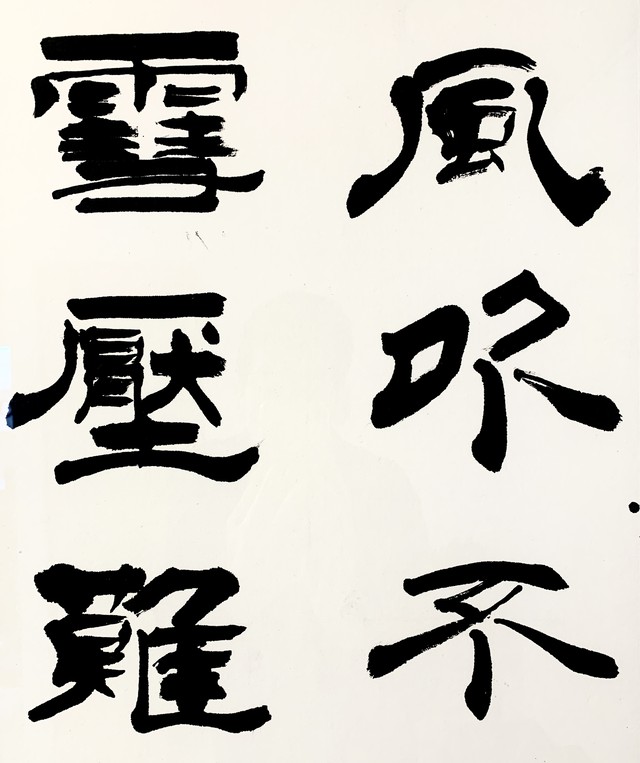 風吹不
雪壓難